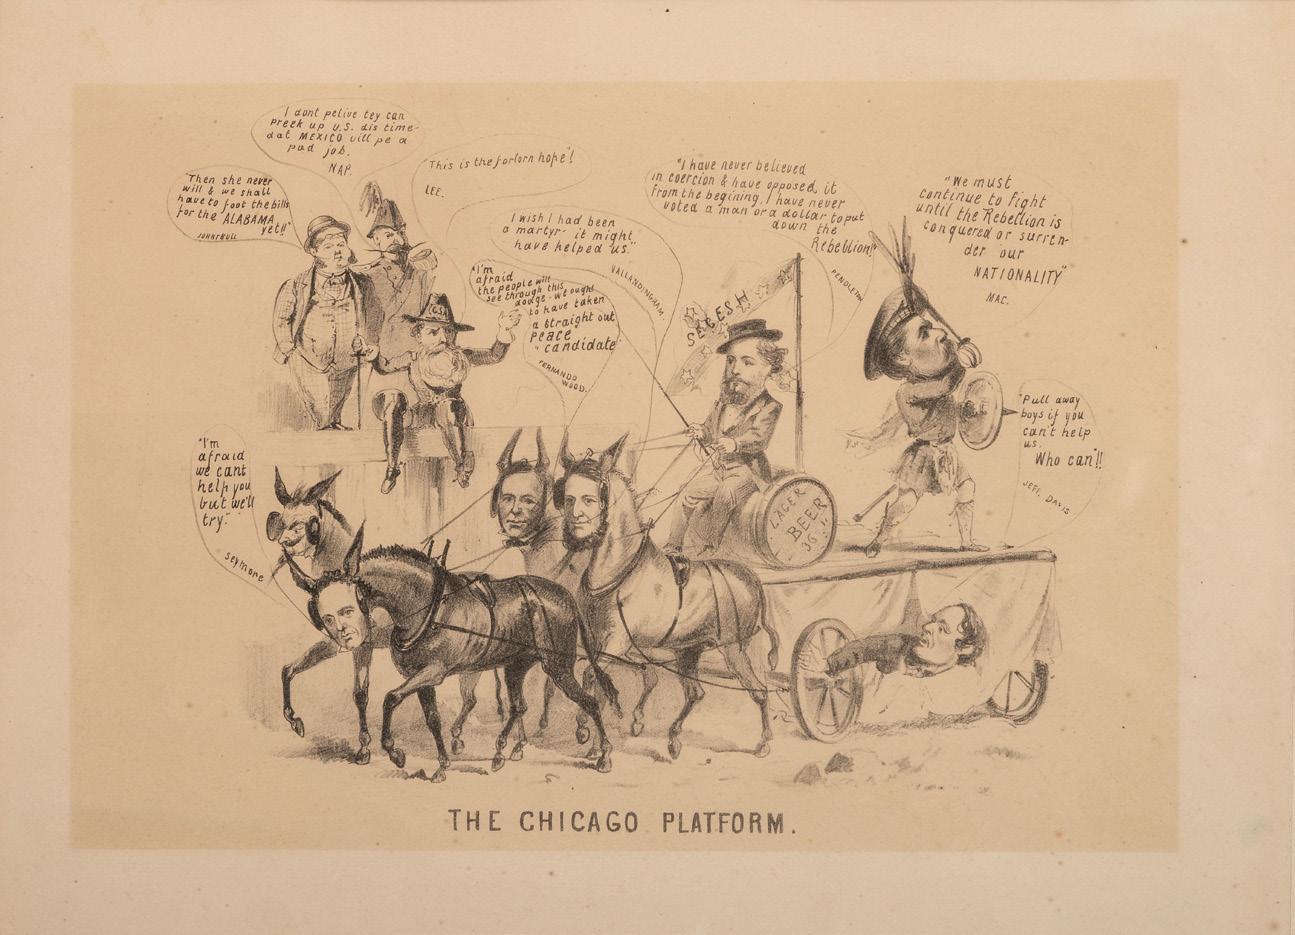 I dont pelive tey can
preek up U.S. dis time-
dat MEXICO vill pe a
pad job.
NAP.
"Then she never
will & we shall
have to foot the bills
for the ALABAMA
yet!!"
JOHNY BULL
"This is the forlorn hope"!
LEE.
I wish I had been
a martyr- it might
have helped us."
VALLANDINGHAM.
"I'm
afraid
the people will
see through this
dodge-we ought
to have taken
a straight out
peace
candidate"
FERNANDO
WOOD.
"I have never believed
in coercion & have opposed it
from the begining, I have never
voted a man or a dollar to put
down the
Rebellion!"
PENDLETON
"We must
continue to fight
until the Rebellion is
conquered or surren-
der our
NATIONALITY"
MAC.
"Pull away
boys if you
can't help
us.
Who can"!!
JEFF. DAVIS
"I'm
afraid
we cant
help you
but we'll
try."
Seymore
C.S.A.
SECESH
LAGER
BEER
36
THE CHICAGO PLATFORM.